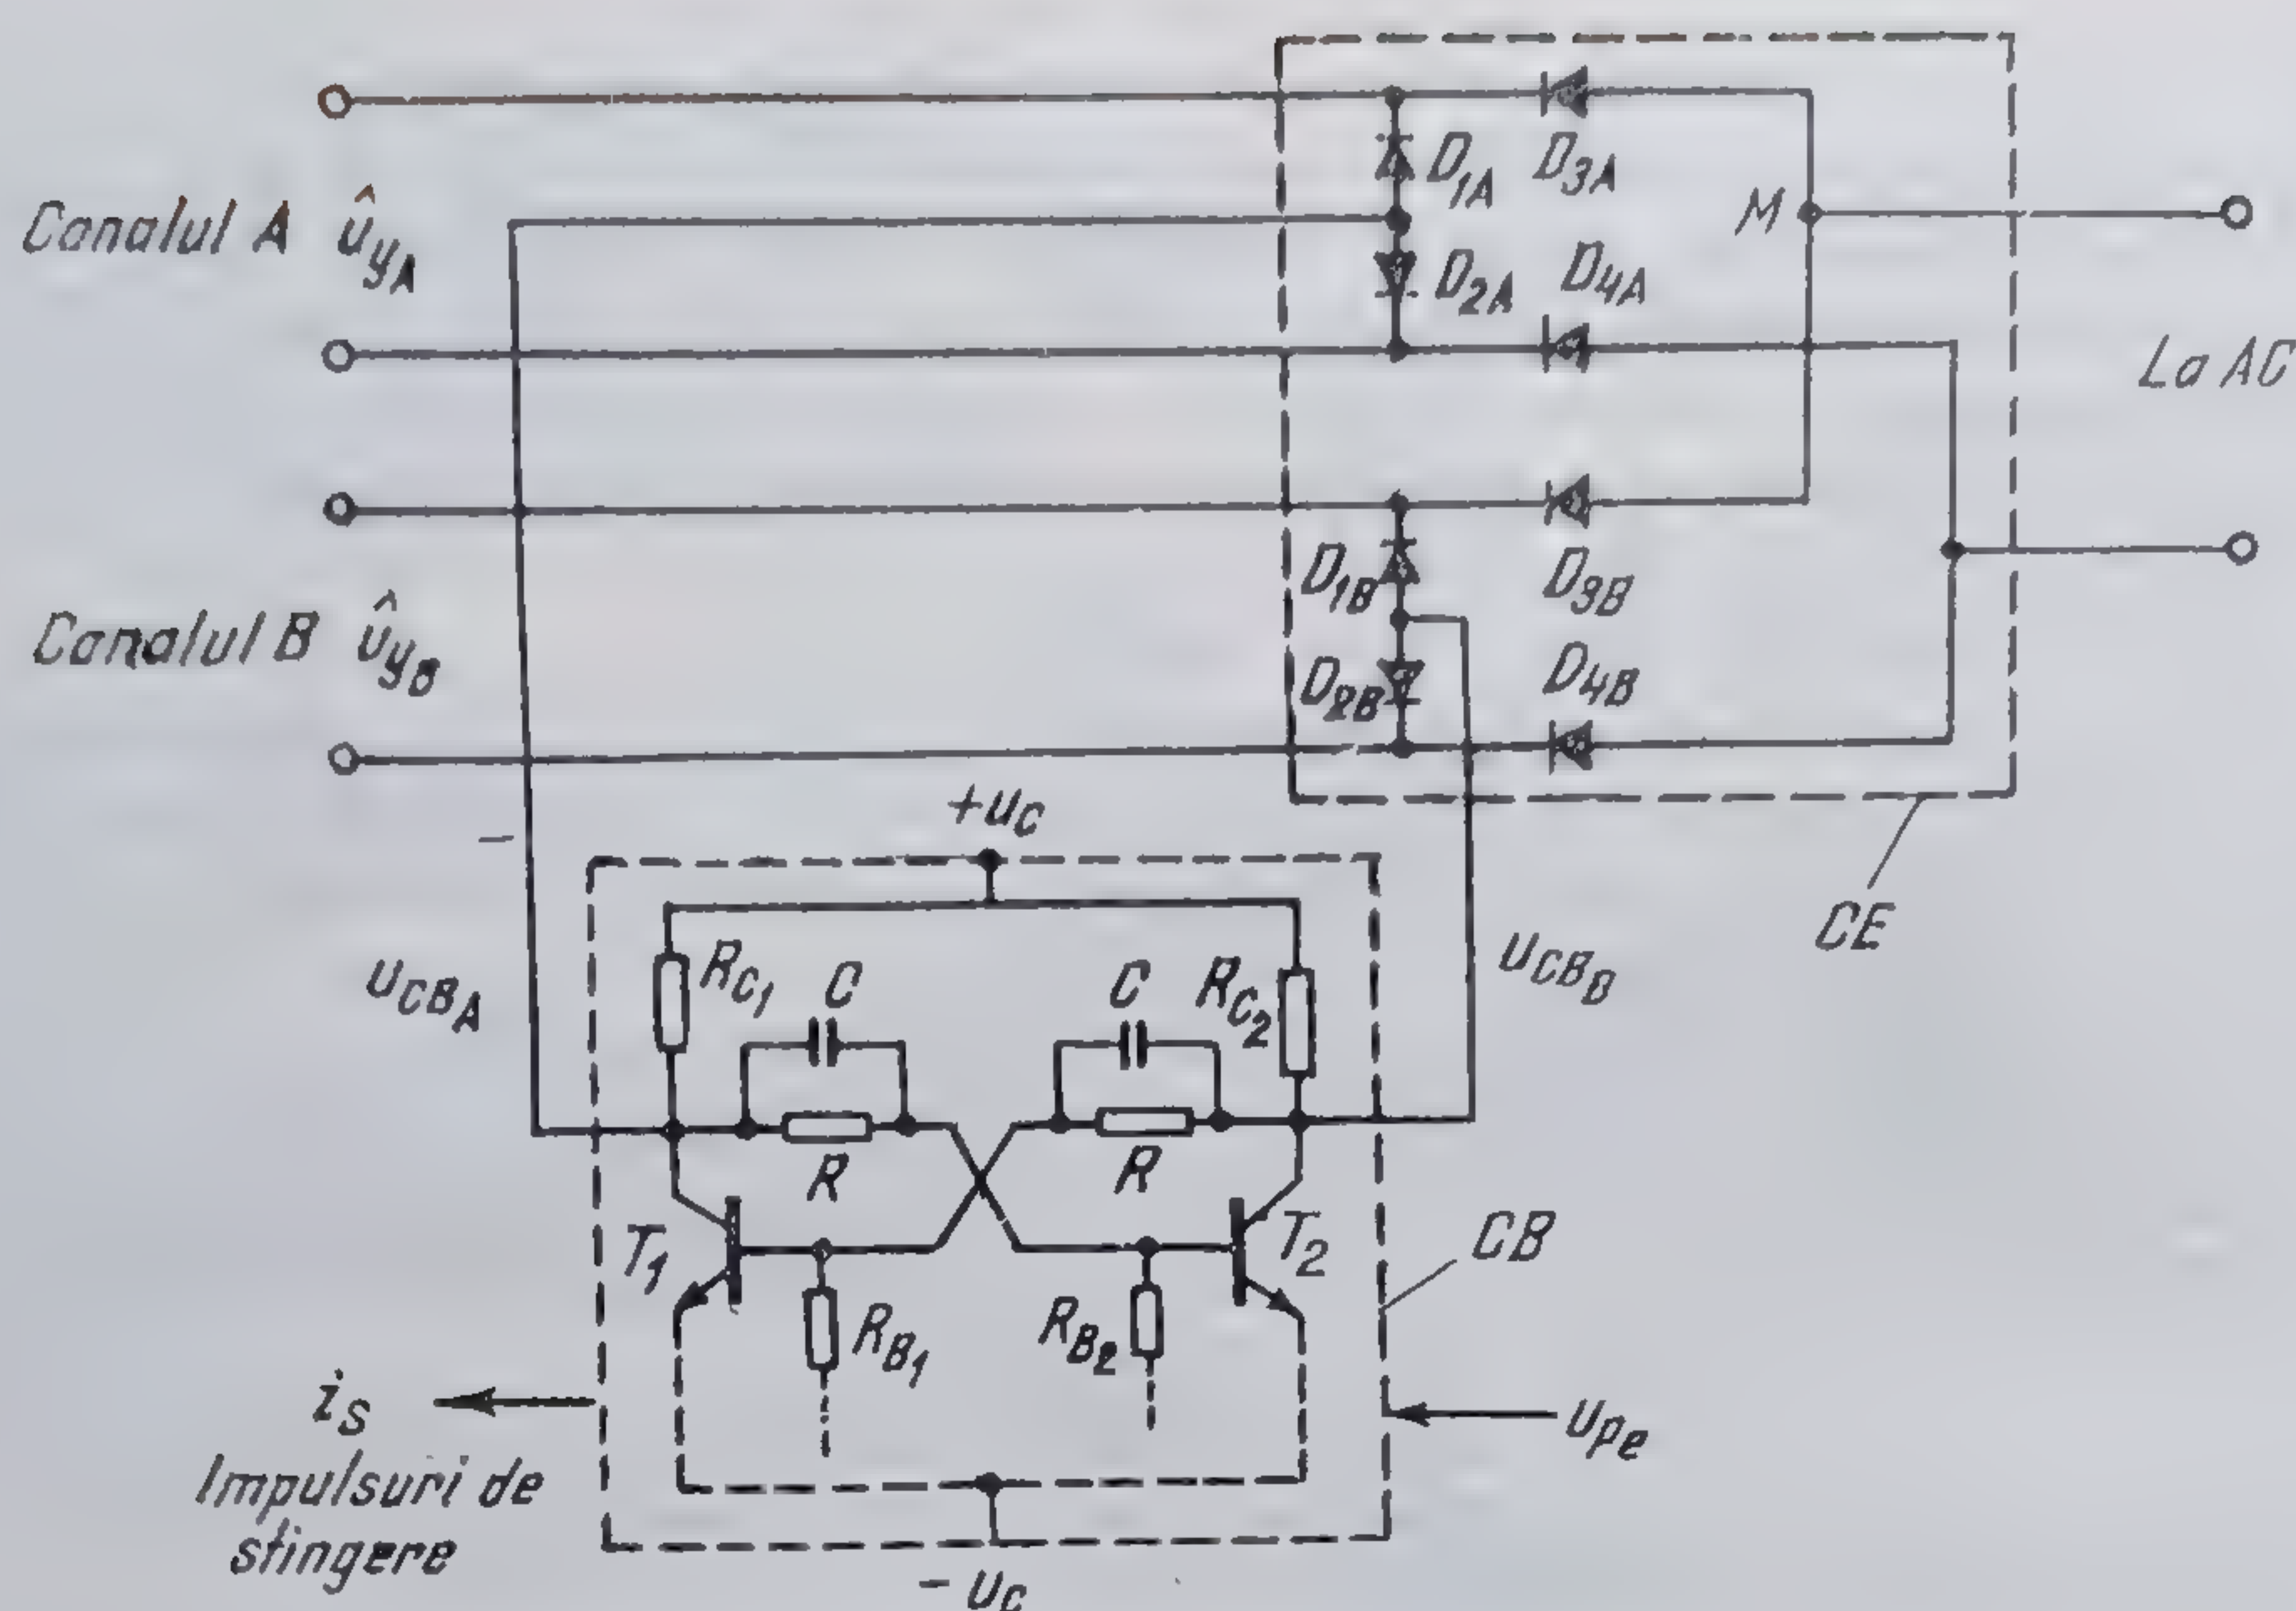 Canalul A û_yA
D_1A
D_3A
M
D_2A
D_4A
La AC
D_1B
D_3B
Canalul B û_yB
D_2B
D_4B
+u_C
-
CE
u_CB_A
R_C1
C
C
R_C2
u_CB_B
R
R
T_1
T_2
CB
R_B1
R_B2
i_s
u_pe
Impulsuri de
stingere
- u_C